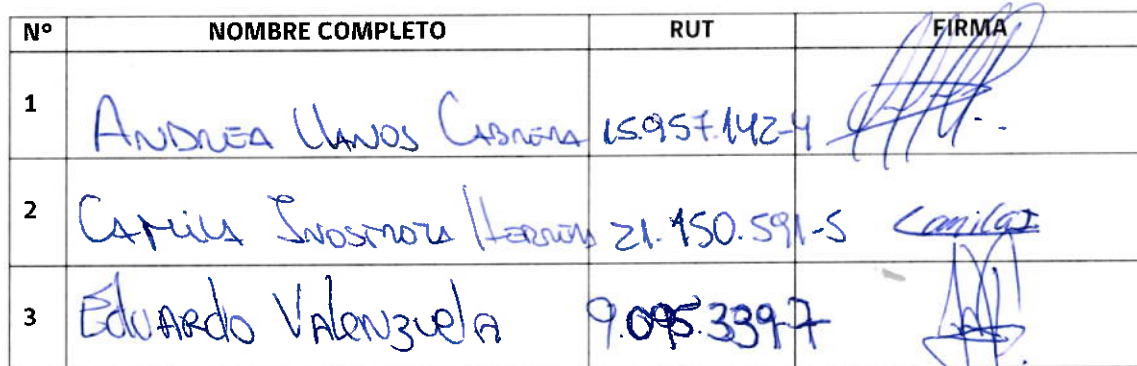 Nº NOMBRE COMPLETO RUT FIRMA
1 ANDREA LLANOS CABRERA 15.957.142-4
2 CAMILA INOSTROZA HERRERA 21.150.591-5 CamilaI.
3 Eduardo Valenzuela 9.095.339-7